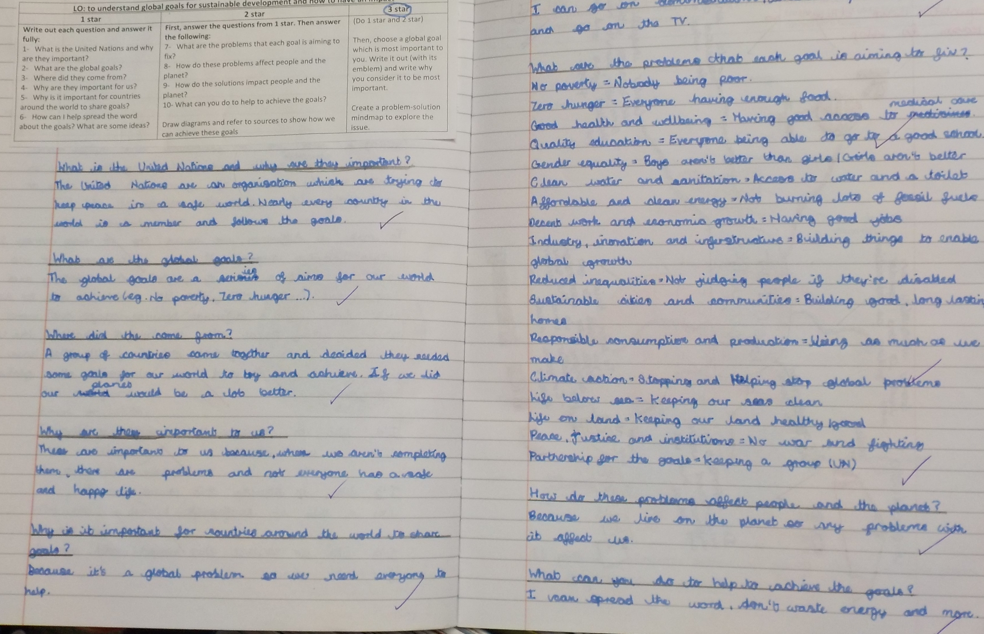 LO: to understand global goals for sustainable development and how to have an impact
1 star
Write out each question and answer it
fully:
1- What is the United Nations and why
are they important?
2- What are the global goals?
3- Where did they come from?
4- Why are they important for us?
5- Why is it important for countries
around the world to share goals?
6- How can I help spread the word
about the goals? What are some ideas?
2 star
First, answer the questions from 1 star. Then answer
the following:
7- What are the problems that each goal is aiming to
fix?
8- How do these problems affect people and the
planet?
9- How do the solutions impact people and the
planet?
10- What can you do to help to achieve the goals?
Draw diagrams and refer to sources to show how we
can achieve these goals
3 star
(Do 1 star and 2 star)
Then, choose a global goal
which is most important to
you. Write it out (with its
emblem) and write why
you consider it to be most
important.
Create a problem-solution
mindmap to explore the
issue.
What is the United Nations and why are they important?
The United Nations are an organisation which are trying to
keep peace in a safe world. Nearly every country in the
world is a member and follows the goals.
What are the global goals?
The global goals are a series of aims for our world
to achieve (eg. No poverty, Zero hunger ...).
Where did the come from?
A group of countries came together and decided they needed
some goals for our world to try and achieve. If we did
our planet would be a lob better.
Why are these important to us?
These are important to us because, when we aren't completing
them, there are problems and not everyone has a safe
and happy life.
Why is it important for countries around the world to share
goals?
Because it's a global problem so we need everyong to
help.
I can go on
and go on the TV.
What are the problems that each goal is aiming to fix?
No poverty = Nobody being poor.
Zero hunger = Everyone having enough food.
Good health and wellbeing = Having good access to medical care
Quality education = Everyone being able to go to a good school.
Gender equality = Boys aren't better than girls / Girls aren't better
Clean water and sanitation = Access to water and a toilet
Affordable and clean energy = Not burning lots of fossil fuels
Decent work and economic growth = Having good jobs
Industry, inovation and inferstructure = Building things to enable
global growth
Reduced inequalities = Not judging people if they're disabled
Sustainable cities and communities = Building good, long lastin
homes
Responsible consumption and production = Using as much as we
make
Climate action = Stopping and Helping stop global problems
Life below sea = Keeping our seas clean
Life on land = Keeping our land healthy / good
Peace, justice and institutions = No war and fighting
Partnership for the goals = Keeping a group (UN)
How do these problems affect people and the planet?
Because we live on the planet so any problems with
it affect us.
What can you do to help to achieve the goals?
I can spread the word, don't waste energy and more.